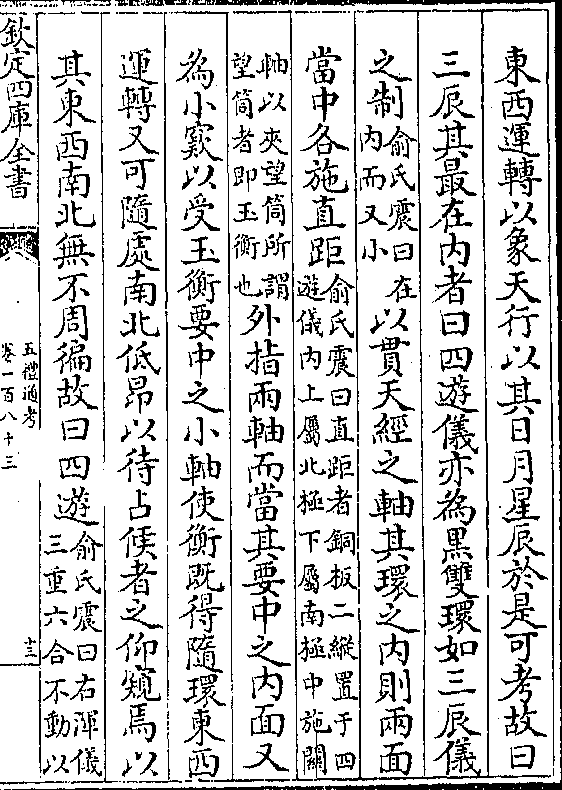 東西運轉以象天行以其日月星辰於是可考故曰
三辰其最在内者曰四遊儀亦為黒雙環如三辰儀
之制俞氏震曰在
内而又小以貫天經之軸其環之内則兩面
當中各施直距俞氏震曰直距者銅板二縱置于四
遊儀内上屬北極下屬南極中施關
軸以夾望筒所謂
望筒者即玉衡也外指兩軸而當其要中之内面又
為小窽以受玉衡要中之小軸使衡既得隨環東西
運轉又可隨處南北低昂以待占候者之仰窺焉以
其東西南北無不周徧故曰四遊俞氏震曰右渾儀
三重六合不動以
欽定四庫全書
五禮通考
卷一百八十三
十三